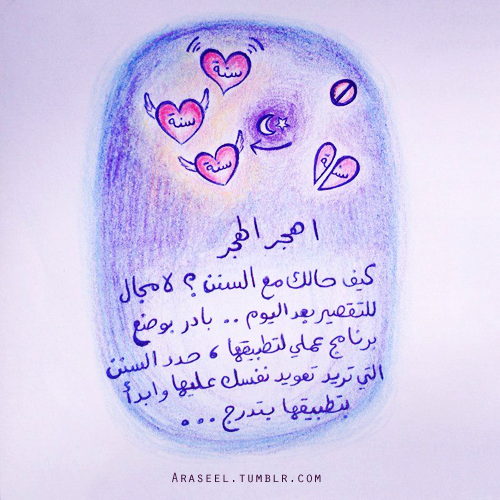 سنة
سنة
سنة
سنة
اهجر الهجر
كيف حالك مع السنن ؟ لا مجال
للتقصير بعد اليوم .. بادر بوضع
برنامج عملي لتطبيقها ، حدد السنن
التي تريد تعويد نفسك عليها وابدأ
بتطبيقها بتدرج ...
ARASEEL.TUMBLR.COM